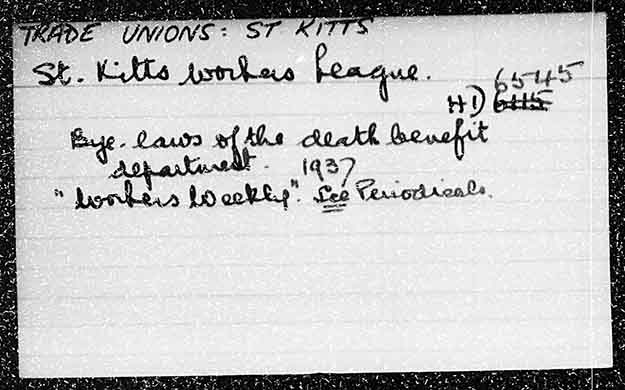 TRADE UNIONS: ST KITTS
St. Kitts Workers League.
6545
HD 6115
Bye-laws of the death benefit
department. 1937
"Workers Weekly". See Periodicals.